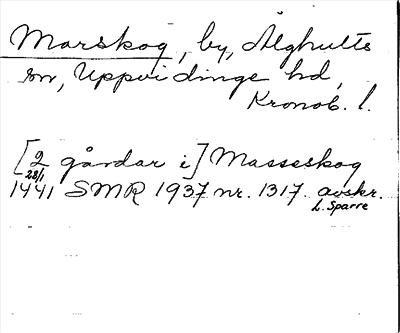 Marskog, by, Älghults
sn, Uppvidinge hd,
Kronob. l.
[2 gårdar i] Masseskog
28/1
1441 SMR 1937 nr. 1317. avskr.
L. Sparre